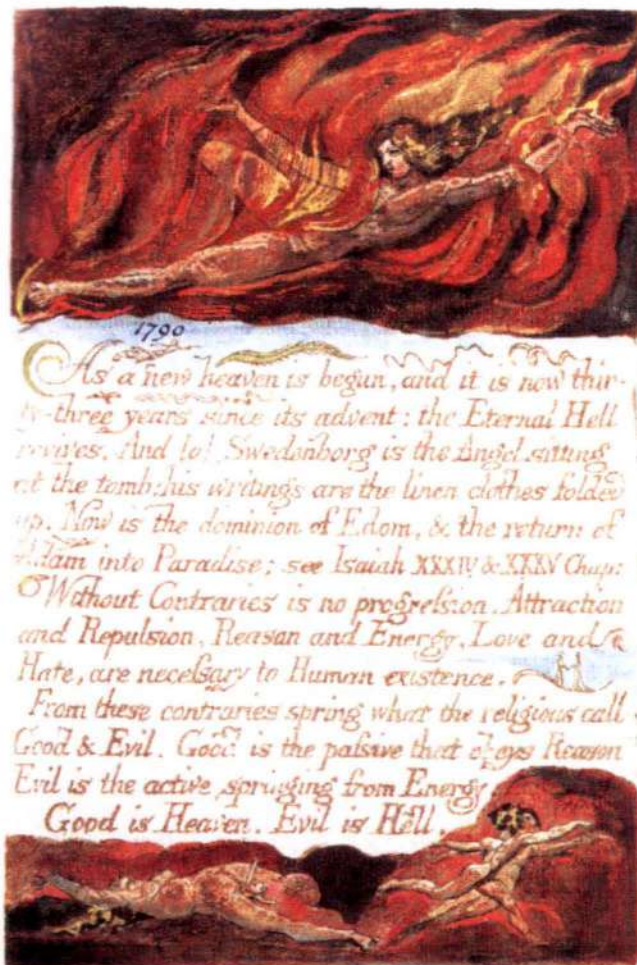 1790
As a new heaven is begun, and it is now thir-
ty-three years since its advent: the Eternal Hell
revives. And lo! Swedenborg is the Angel sitting
at the tomb: his writings are the linen clothes folded
up. Now is the dominion of Edom, & the return of
Adam into Paradise; see Isaiah XXXIV & XXXV Chap:
Without Contraries is no progression. Attraction
and Repulsion, Reason and Energy, Love and
Hate, are necessary to Human existence.
From these contraries spring what the religious call
Good & Evil. Good is the passive that obeys Reason
Evil is the active springing from Energy
Good is Heaven. Evil is Hell.